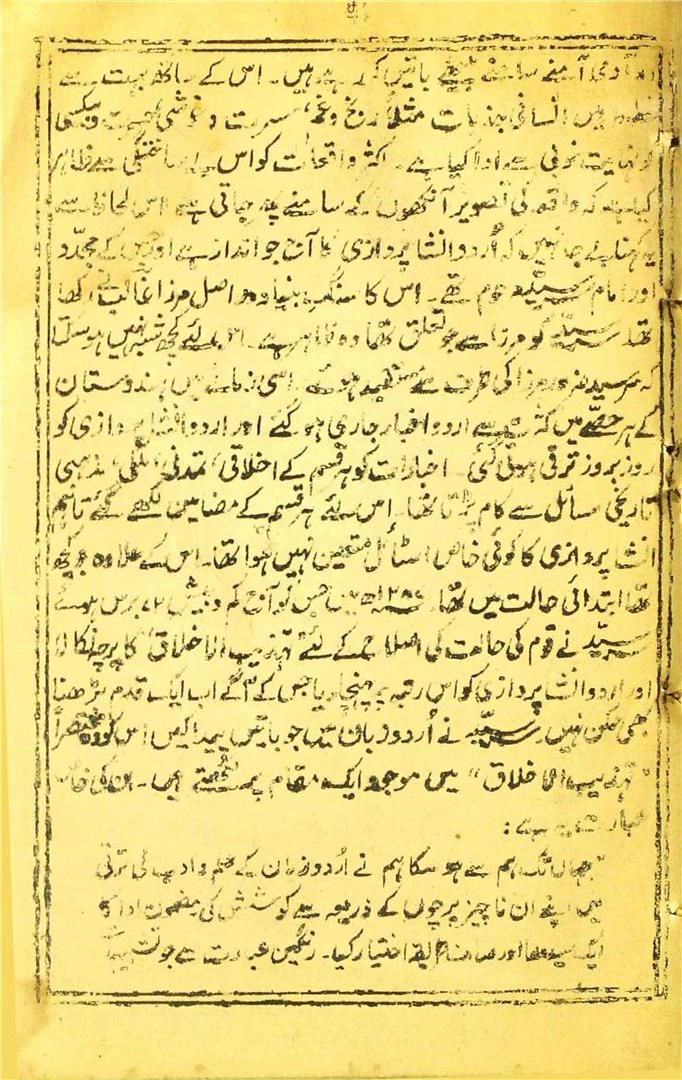 آدمی آمنے سامنے بیٹھے باتیں کر رہے ہیں۔ اس کے ساتھ بہت سے
میں انسانی جذبات مثلاً رنج و غم، مسرت و خوشی
کو نہایت خوبی سے ادا کیا ہے۔ اکثر واقعات کو اس بے ساختگی سے ظاہر
کیا ہے کہ واقعہ کی تصویر آنکھوں کے سامنے پھر جاتی ہے اس لحاظ سے
یہ کہنا بے جا نہیں کہ اُردو انشا پردازی کا آج جو انداز ہے اور جس کے مجدّد
اور امام سرسیّد مرحوم تھے۔ اس کا سنگِ بنیاد دراصل مرزا غالب نے رکھا
تھا۔ سرسیّد کو مرزا سے جو تعلق تھا وہ ظاہر ہے۔ اس لئے کچھ شبہ نہیں ہو سکتا
کہ سرسید ضرور مرزا کی طرز سے مستفید ہوئے۔ اسی زمانے میں ہندوستان
کے ہر حصّے میں کثرت سے اردو اخبار جاری ہو گئے اور اردو انشا پردازی کو
روز بروز ترقی ہوتی گئی۔ اخبارات کو ہر قسم کے اخلاقی، تمدنی، ملکی، مذہبی
تاریخی مسائل سے کام پڑتا تھا۔ اس لئے ہر قسم کے مضامین لکھے گئے تاہم
انشا پردازی کا کوئی خاص اسٹائل متعین نہیں ہوا تھا۔ اس کے علاوہ جو کچھ
تھا ابتدائی حالت میں تھا۔ میں جس کو آج کم و بیش ۲۷ برس ہوئے
سرسیّد نے قوم کی حالت کی اصلاح کے لئے "تہذیب الاخلاق" کا پرچہ نکالا
اور اردو انشا پردازی کو اس رتبہ پر پہنچا دیا جس کے آگے اب ایک قدم بڑھنا
بھی ممکن نہیں۔ سرسیّد نے اُردو زبان میں جو باتیں پیدا کیں اس کو وہ مختصراً
"تہذیب الاخلاق" میں موجود ایک مقام پر لکھتے ہیں۔ ان کی خاص
عبارت یہ ہے:
"جہاں تک ہم سے ہو سکا ہم نے اُردو زبان کے علم و ادب کی ترقی
میں اپنے ان ناچیز پرچوں کے ذریعہ سے کوشش کی۔ مضمون ادا کا
ایک سیدھا اور صاف طریقہ اختیار کیا۔ رنگین عبارت سے جو